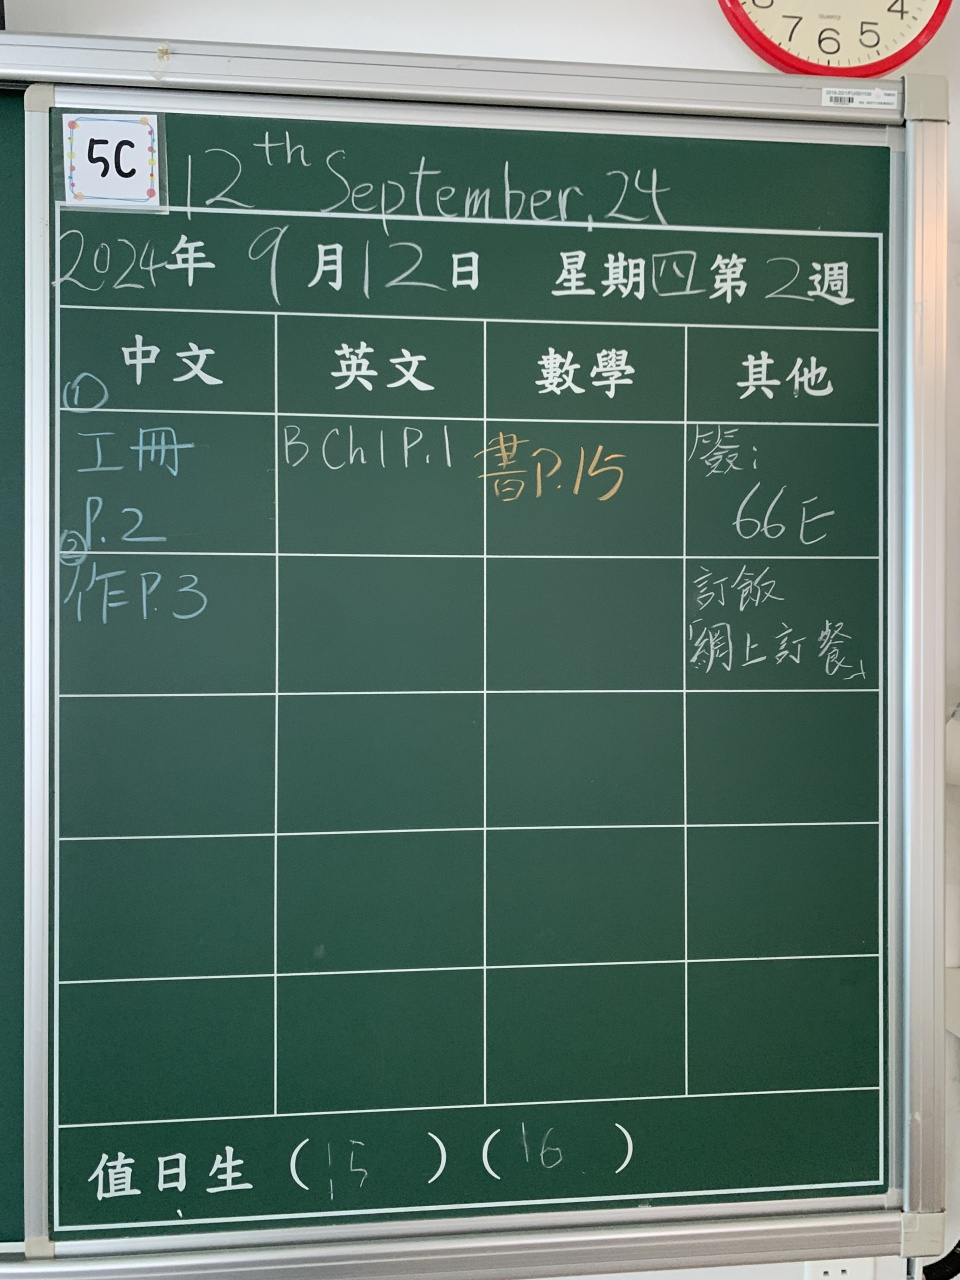 7 6 5 4
QUARTZ
5C
12th September, 24
2024年 9月12日 星期四 第2週
中文 英文 數學 其他
① 工冊 P.2
B Ch1 P.1
書P.15
66E
② 作P.3
訂飯
「網上訂餐」
值日生 (15) (16)